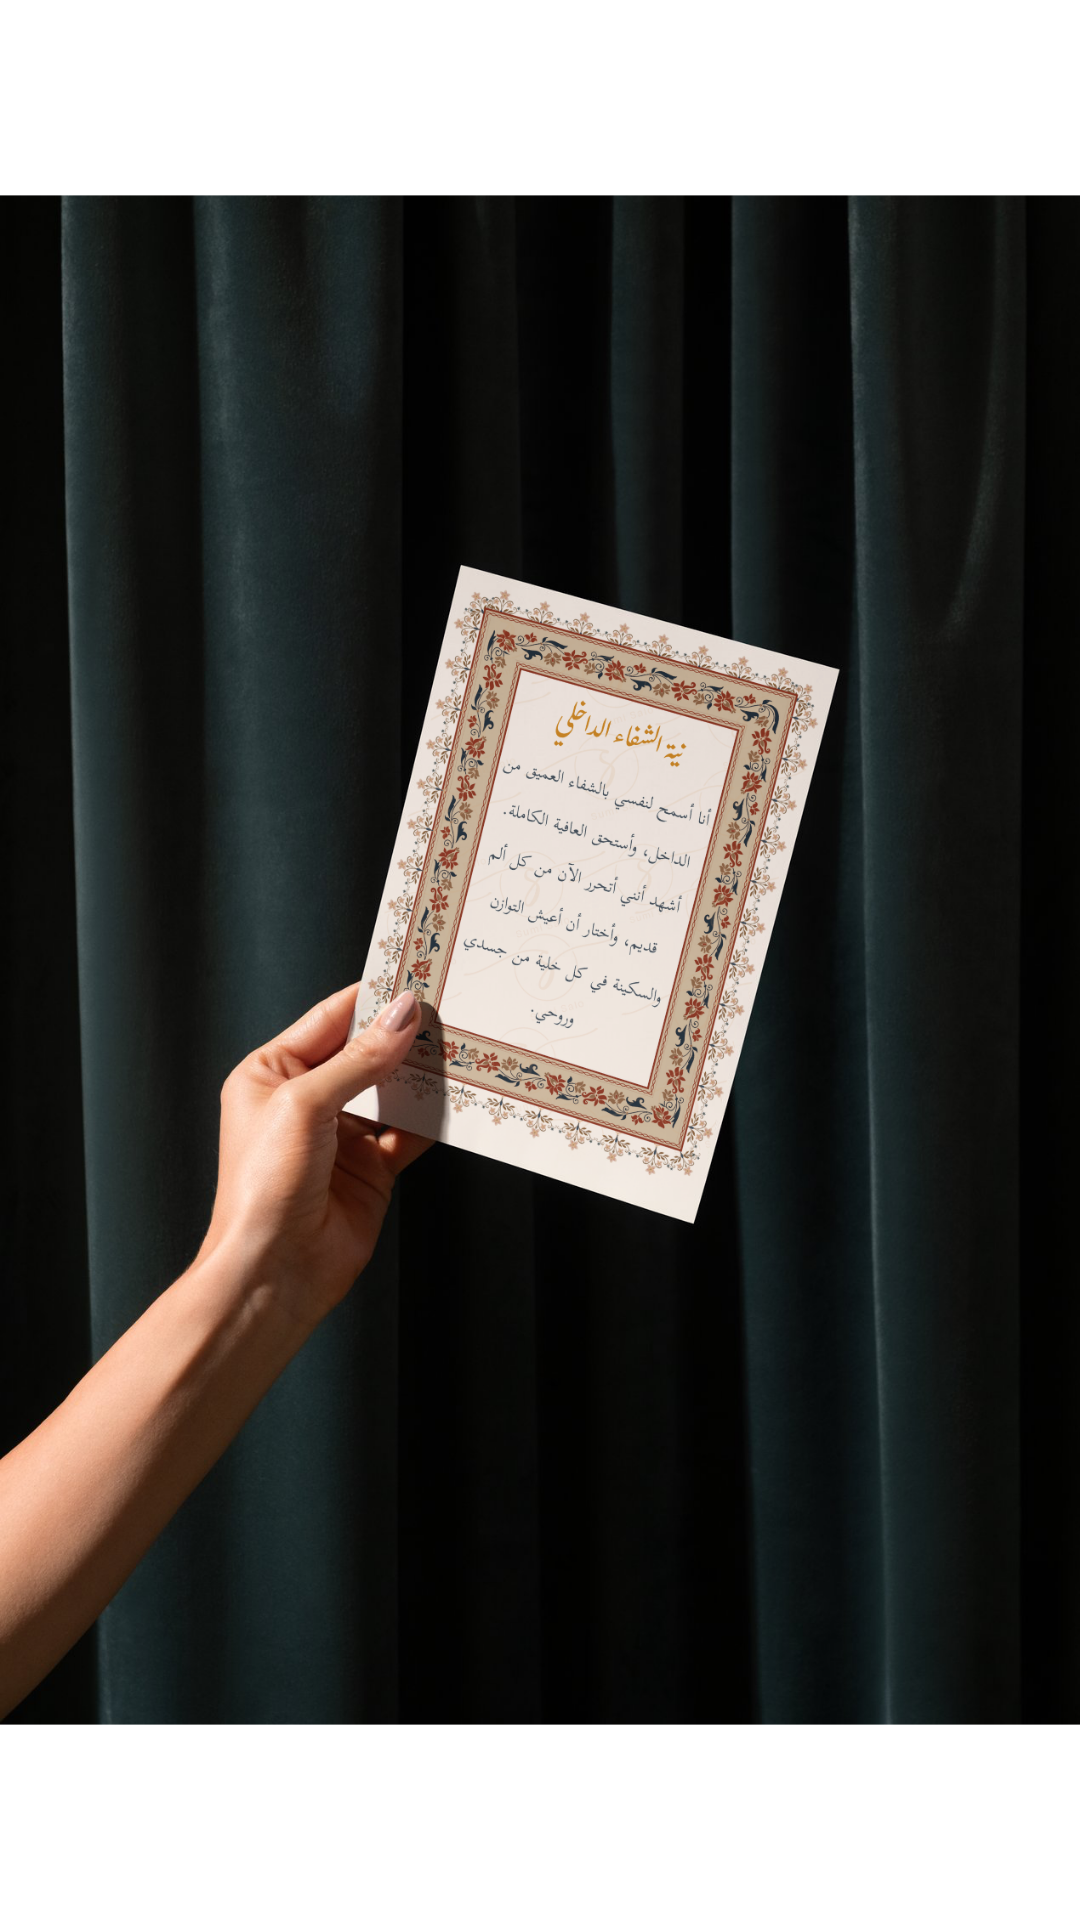 نية الشفاء الداخلي
أنا أسمح لنفسي بالشفاء العميق من
الداخل، وأستحق العافية الكاملة.
أشهد أنني أتحرر الآن من كل ألم
قديم، وأختار أن أعيش التوازن
والسكينة في كل خلية من جسدي
وروحي.